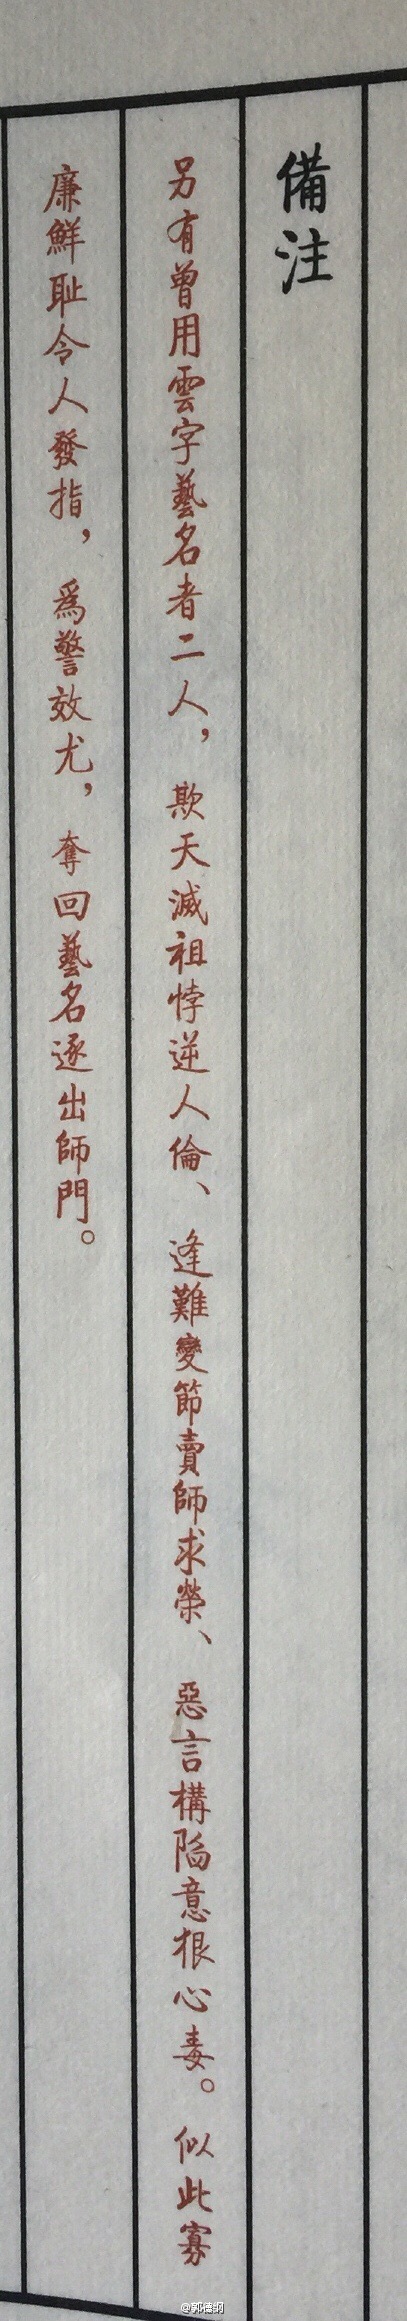 備注
另有曾用雲字藝名者二人，欺天滅祖悖逆人倫、逢難變節賣師求榮、惡言構陷意狠心毒。似此寡
廉鮮耻令人發指，爲警效尤，奪回藝名逐出師門。
@郭德纲